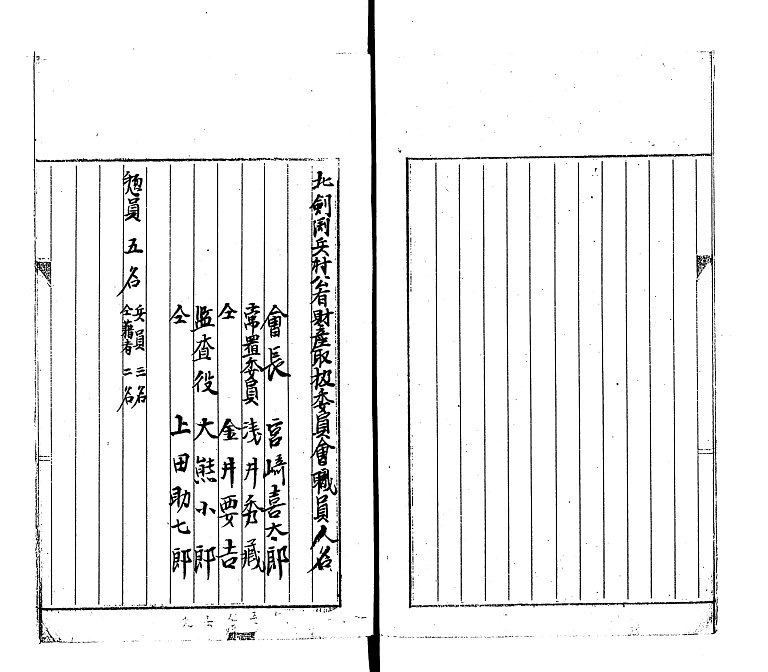 北剣渕兵村公有財産取扱委員會職員人名
會長 宮崎喜太郎
常置委員 浅井秀蔵
仝 金井要吉
監査役 大熊小一郎
仝 上田助七郎
総員 五名
兵員 三名
仝藉者 二名